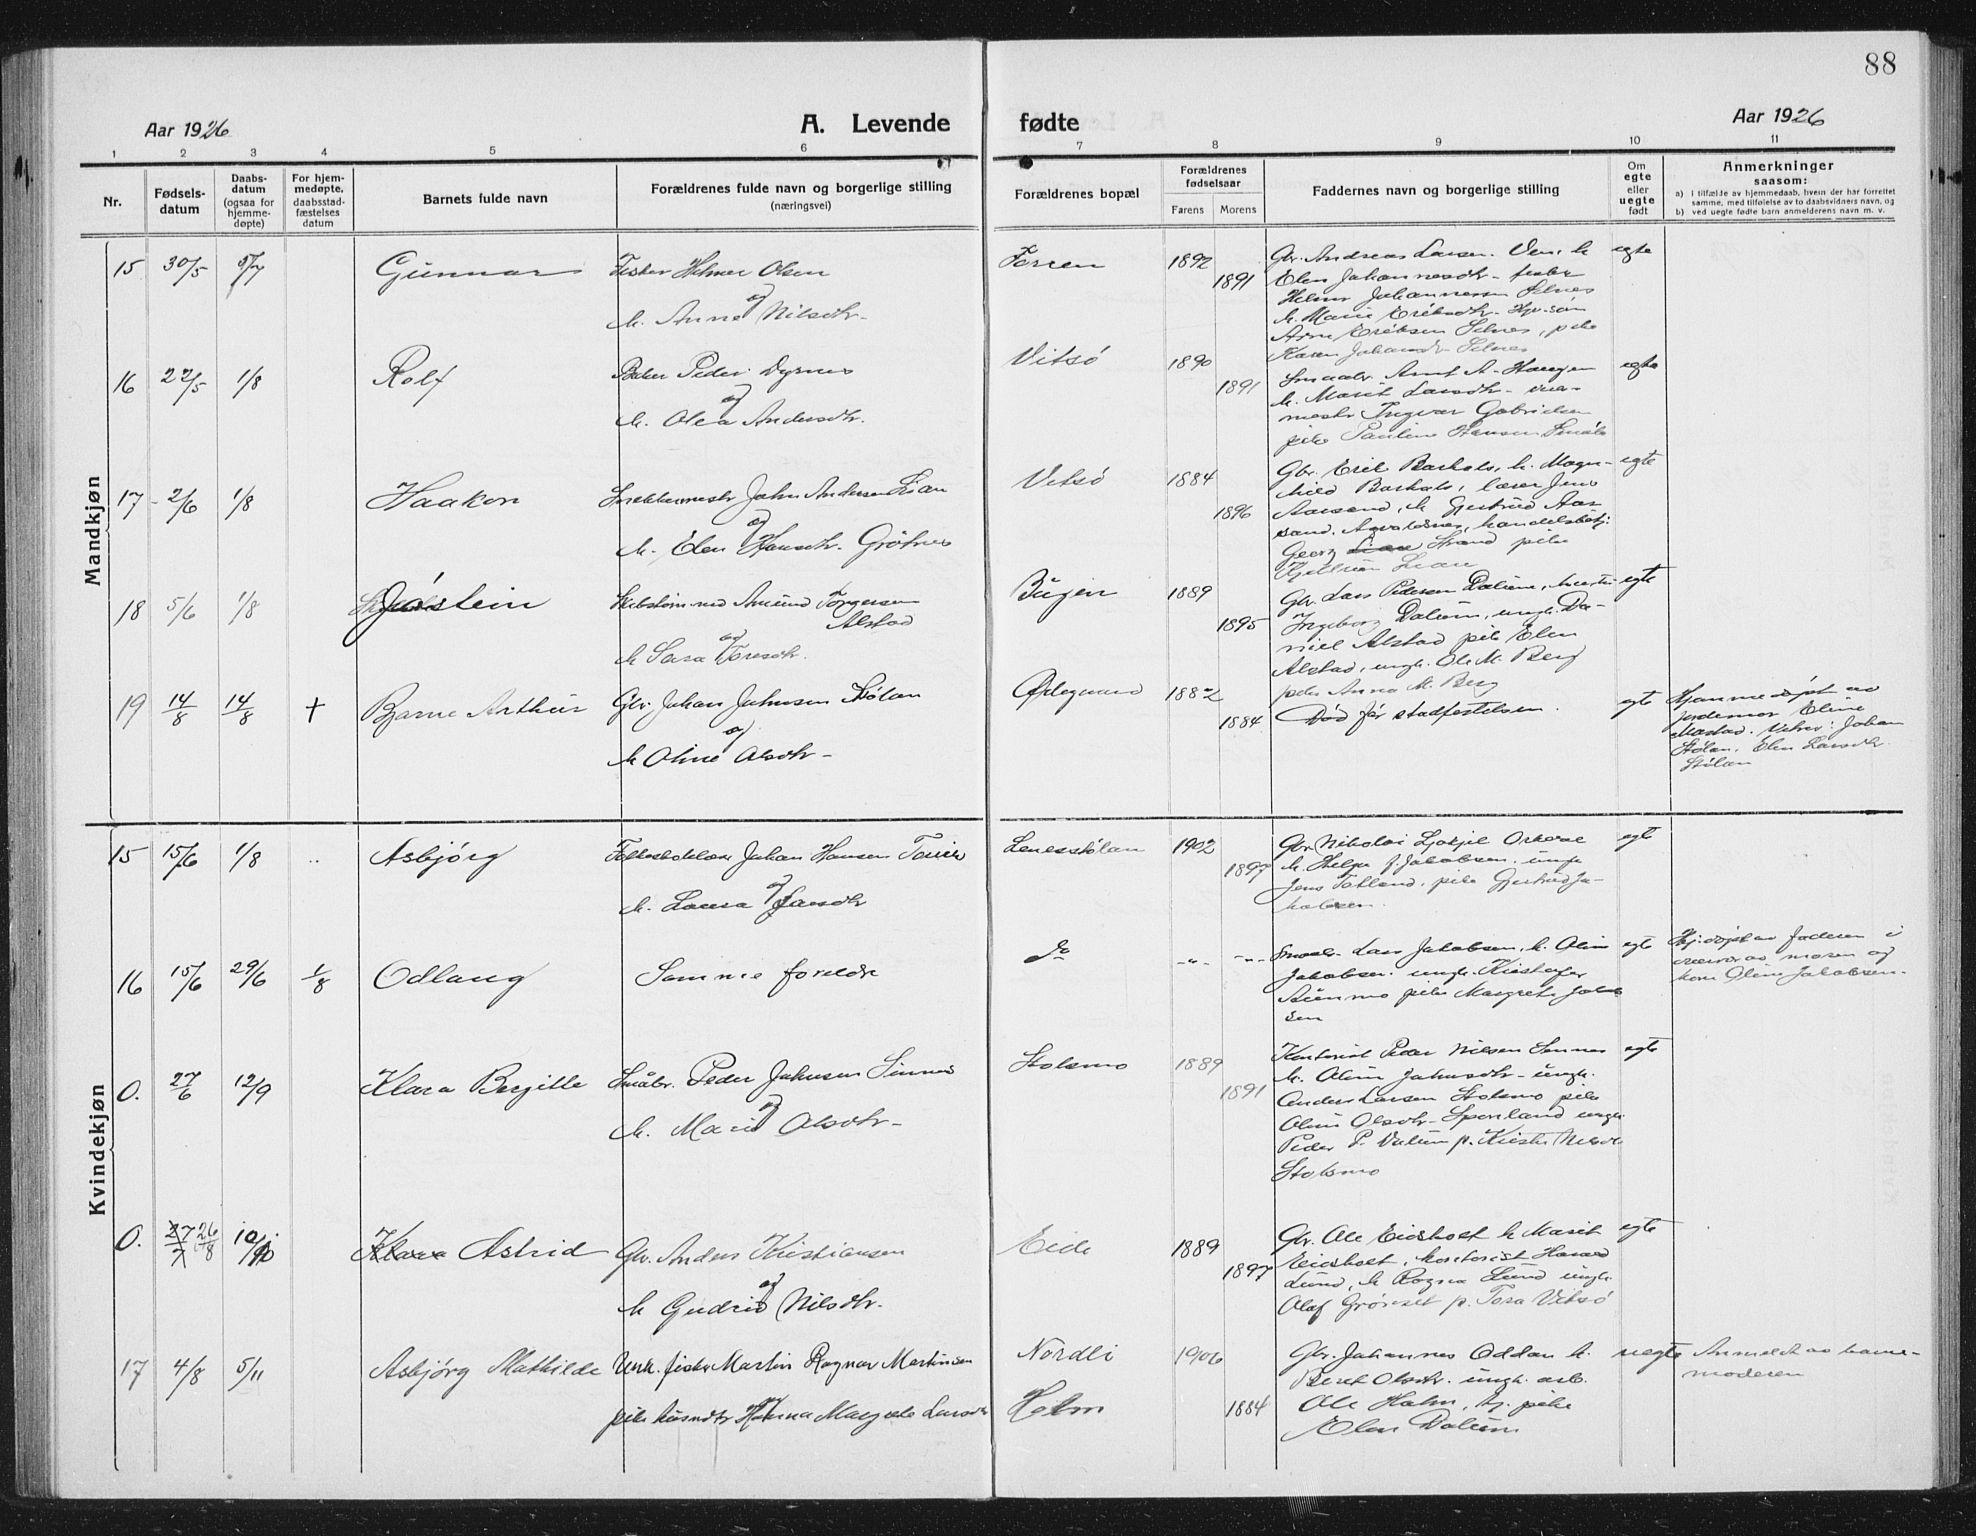 88
Aar 1926
A. Levende fødte
Aar 1926
1 2 3 4 5 6 7 8 9 10 11
Nr.
Fødsels-
datum
Daabs-
datum
(ogsaa for
hjemme-
døpte)
For hjem-
medøpte,
daabsstad-
fæstelses
datum
Barnets fulde navn
Forældrenes fulde navn og borgerlige stilling
(næringsvei)
Forældrenes bopæl
Forældrenes
fødselsaar
Farens Morens
Faddernes navn og borgerlige stilling
Om
egte
eller
uegte
født
Anmerkninger
saasom:
a) I tilfælde av hjemmedaab, hvem der har forrettet
samme, med tilføielse av to daabsvidners navn, og
b) ved uegte fødte barn anmelderens navn m. v.
Mandkjøn
15 30/5 Gunnar Fisker Helmer Olsen
og
h. Anne Nilsdtr.
1892
1891
Gbr. Andreas Larsen h.
Elen Johannesdtr.
Helmer Johannessen Selnes
h. Marie Eriksdtr.
Arne Eriksen Selnes, pike
Karen Johansdtr Selnes
egte
16 22/5 1/8 Rolf Peder Dyrnes
og
h. Olea Andersdtr.
Vitsø
1890
1891
Smaabr. Arnt A. Haugen
h. Marit Larsdtr.
Ingvar Gabrielsen
pike Pauline Hansen
egte
17 2/6 1/8 Haakon Snekkermestr John Andersen Lian
og
h. Elen Hansdtr. Grötnes
Vitsø
1884
1896
Gbr. Erik Barhals, h. Magn-
hild Barhals, lærer Jens
Aarsand, h. Gjertrud Aar-
sand, handelsbetj.
Georg Strand pike
Lian
egte
18 5/6 1/8 Jøstein Amund Torgersen
Alstad
og
h Sara Toresdtr.
1889
1895
Gbr. Lars Pedersen Dalum, hustr.
Ingeborg Dalum, ungk. Da-
niel Alstad pike Elen
Alstad, ungk. Ole M. Berg
pike Anna M. Berg
egte
19 14/8 14/8 + Bjarne Arthur Gbr. Johan Johnsen Stølan
og
h Oline Olsdtr.
Ødegaard
1882
1884
Død før stadfestelsen.
egte
Hjemmedøpt av
jordemor Eline
Mastad. Vidner: Johan
Stølan, Elen Larsdtr.
Stølan
Kvindekjøn
15 15/6 1/8 Asbjørg Johan Hansen
og
h. Laura Jansdtr
Lenesstølan
1902
1897
Gbr. Nikolai
h. Helga J. Jakobsen. ungk
Jens Tofland, pike Gjertrud Ja-
kobsen.
egte
16 15/6 29/6 1/8 Odlaug Samme foreldre
do
-"- -"-
Lars Jakobsen, h. Oline
Jakobsen. ungk. Kristofer
pike Margrete Jakob-
sen
egte
Hj.døpt av faderen i
nærvær av moren og
kone Oline Jakobsen.
0. 27/6 12/9 Klara Bergitte Småbr. Peder Johnsen Sinnes
og
h. Marie Olsdtr.
Stolsmo
1889
1891
Kontorist Peder Nilsen Sinnes
h. Oline Johnsdtr. ungk.
Anders Larsen Stolsmo pike
Oline Olsdtr. ungk.
Peder P. Dalum p. Kirsti Nilsdtr
Stolsmo
egte
0. 27/7 26/8 10/10 Klara Astrid Gbr. Anders Kristiansen
og
h Gudrid Nilsdtr.
Eide
1889
1897
Gbr. Ole Eidsholt h Marit
Eidsholt, kontorist Harald
Lund, h Ragna Lund ungk.
Olaf Grønset p. Tora Vitsø
egte
17 4/8 5/11 Asbjørg Mathilde Unk. fisker Martin Ragnar Martinsen
og
Hanna Margrete Larsdtr
Nordli
Holm
1906
1884
Gbr. Johannes Oddan h.
Beret Olsdtr. ungk. arb.
Ole Holm, pike
Elen Dalum
uegte
Anmeldt av barne-
moderen